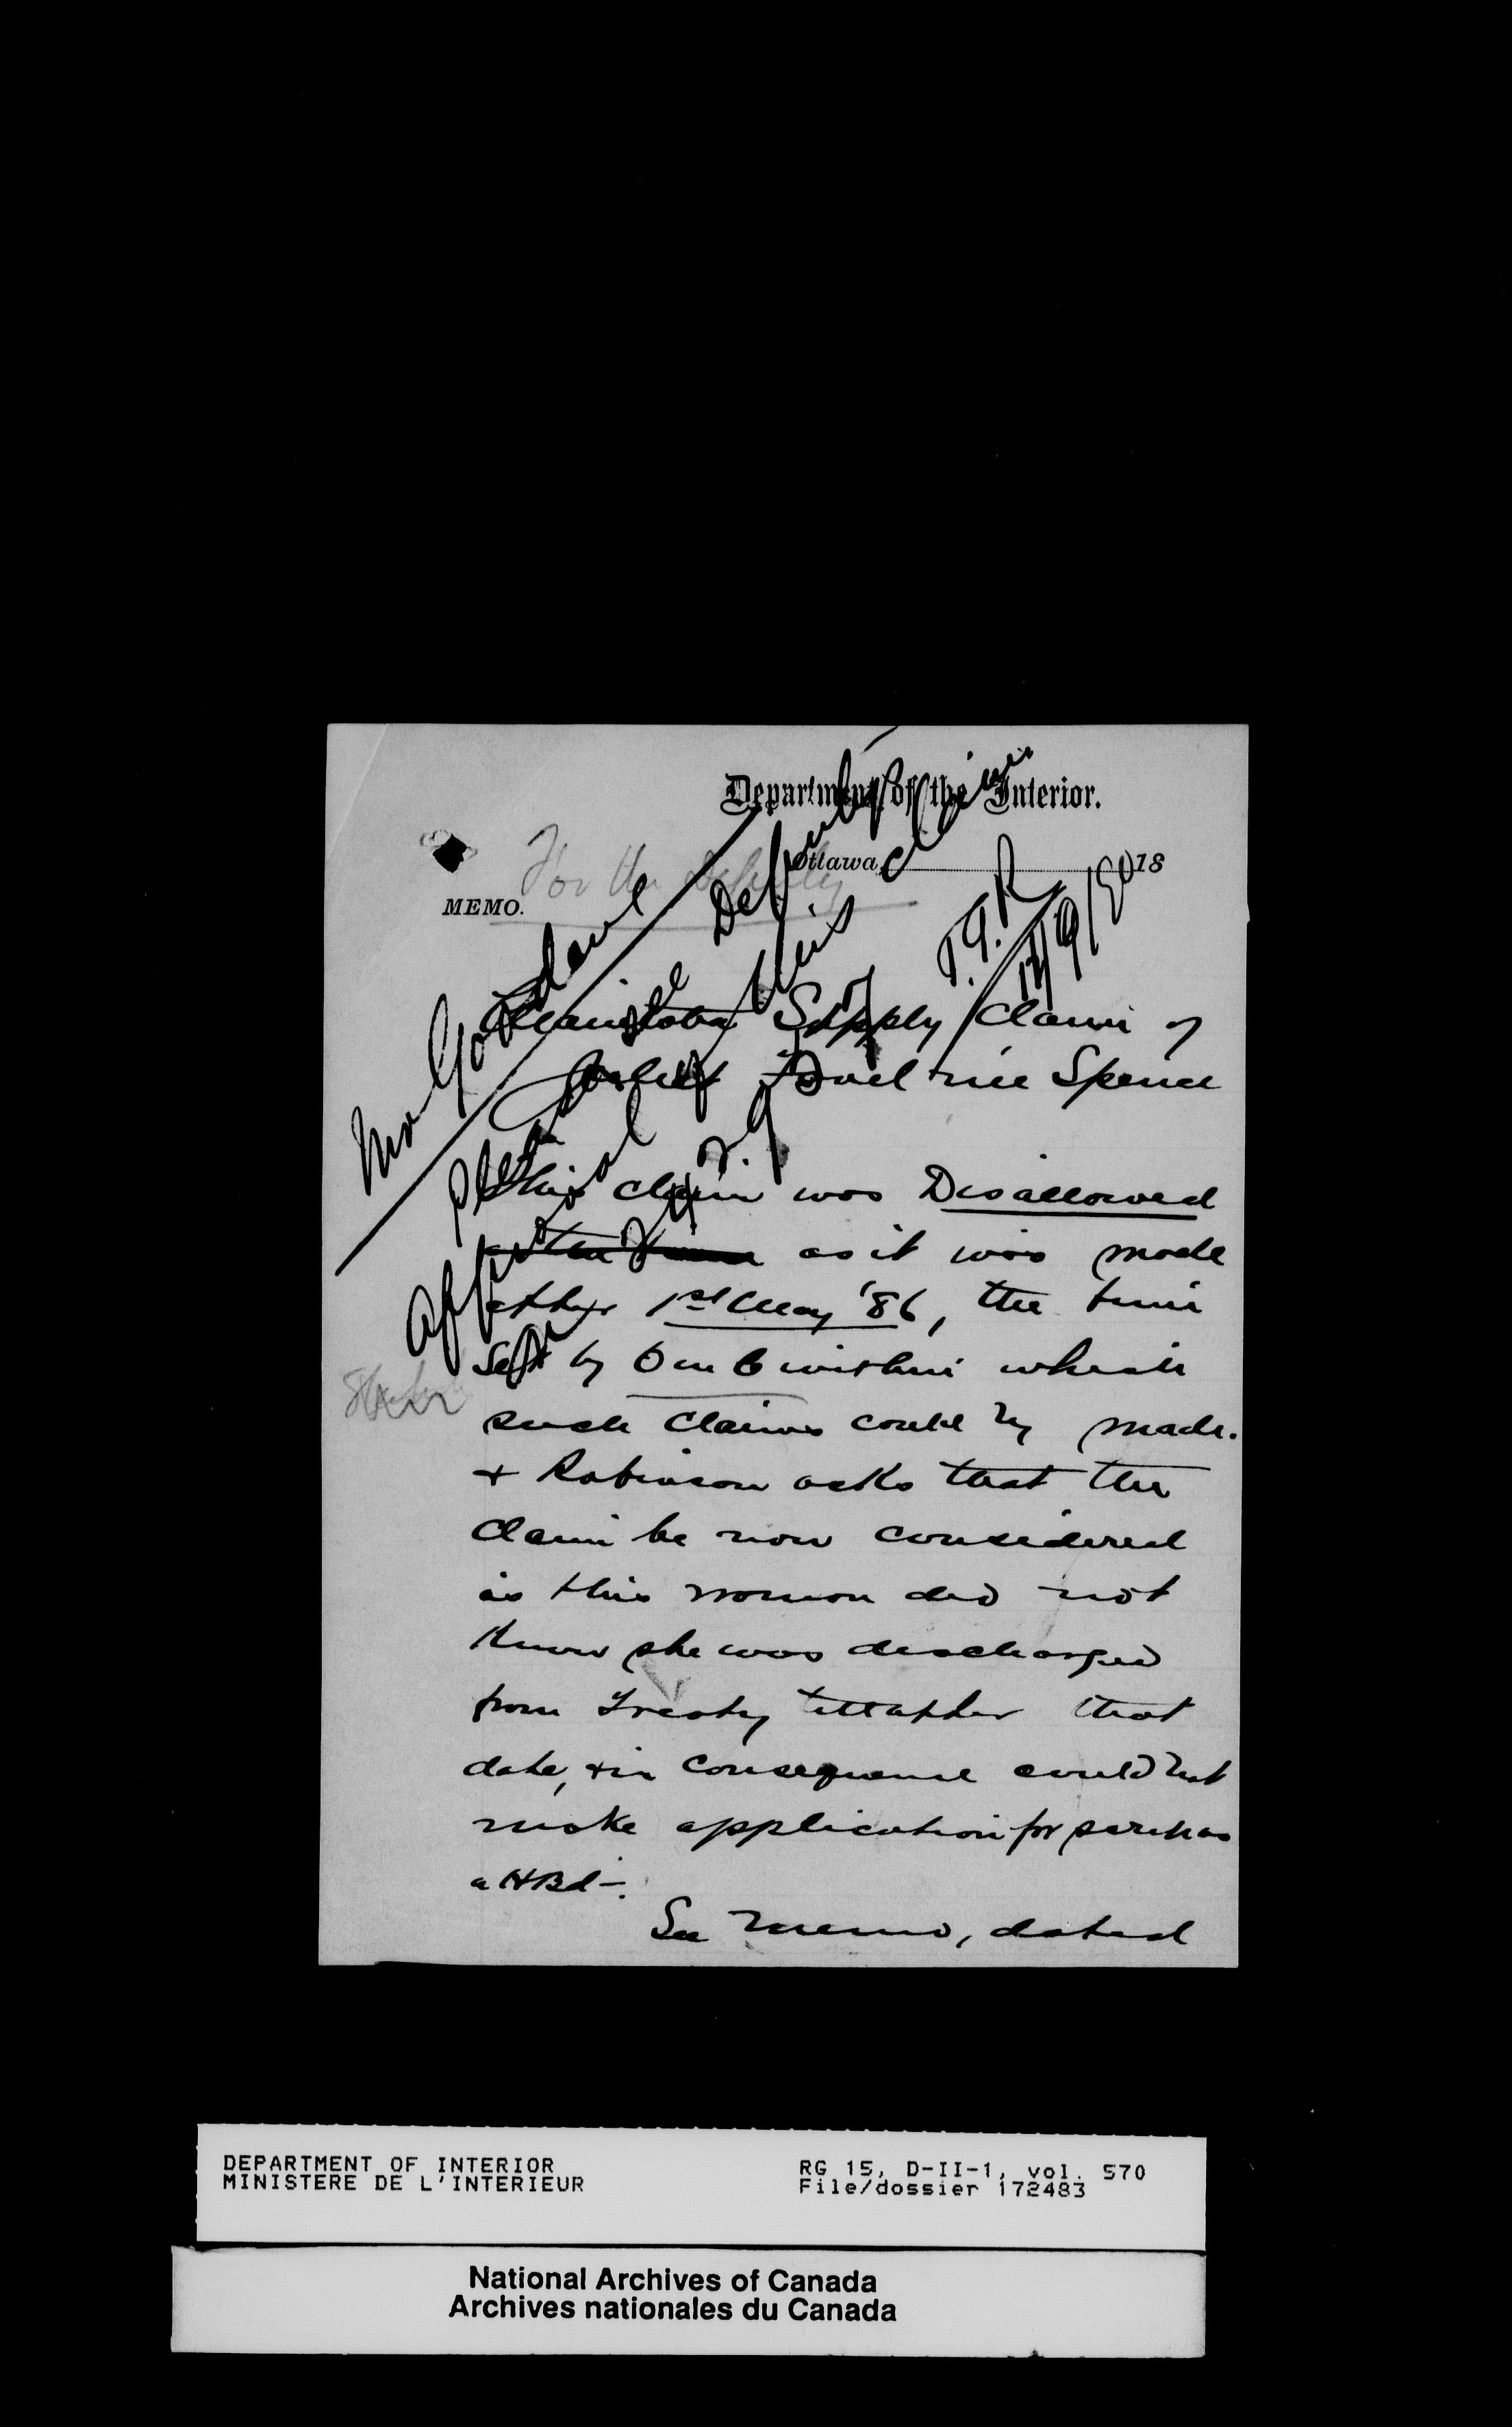 Department of the Interior.
Ottawa, 18
MEMO.
For the Deputy
Mr Goodeve
Please see Deputy's
approval of this claim
T.G.R.
17/9/80
Manitoba Supply Claim of
Buil née Spence
This claim was Disallowed
as it was made
after 1st May '86, the time
set by O in C within which
such claims could be made.
+ Robinson asks that the
claim be now considered
as this woman did not
know she was discharged
from Treaty till after that
date, & in consequence could not
make application for scrip as
a HBd—.
See memo, dated
DEPARTMENT OF INTERIOR
MINISTERE DE L'INTERIEUR
RG 15, D-II-1, vol. 570
File/dossier 172483
National Archives of Canada
Archives nationales du Canada